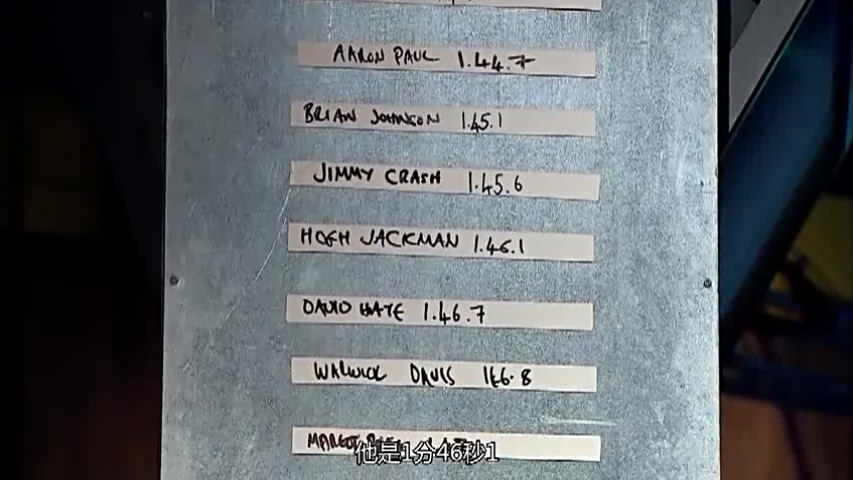 AARON PAUL 1.44.7
BRIAN JOHNSON 1.45.1
JIMMY CRASH 1.45.6
HUGH JACKMAN 1.46.1
DAVID HAYE 1.46.7
WARWICK DAVIS 1.46.8
MARGOT
他是1分46秒1